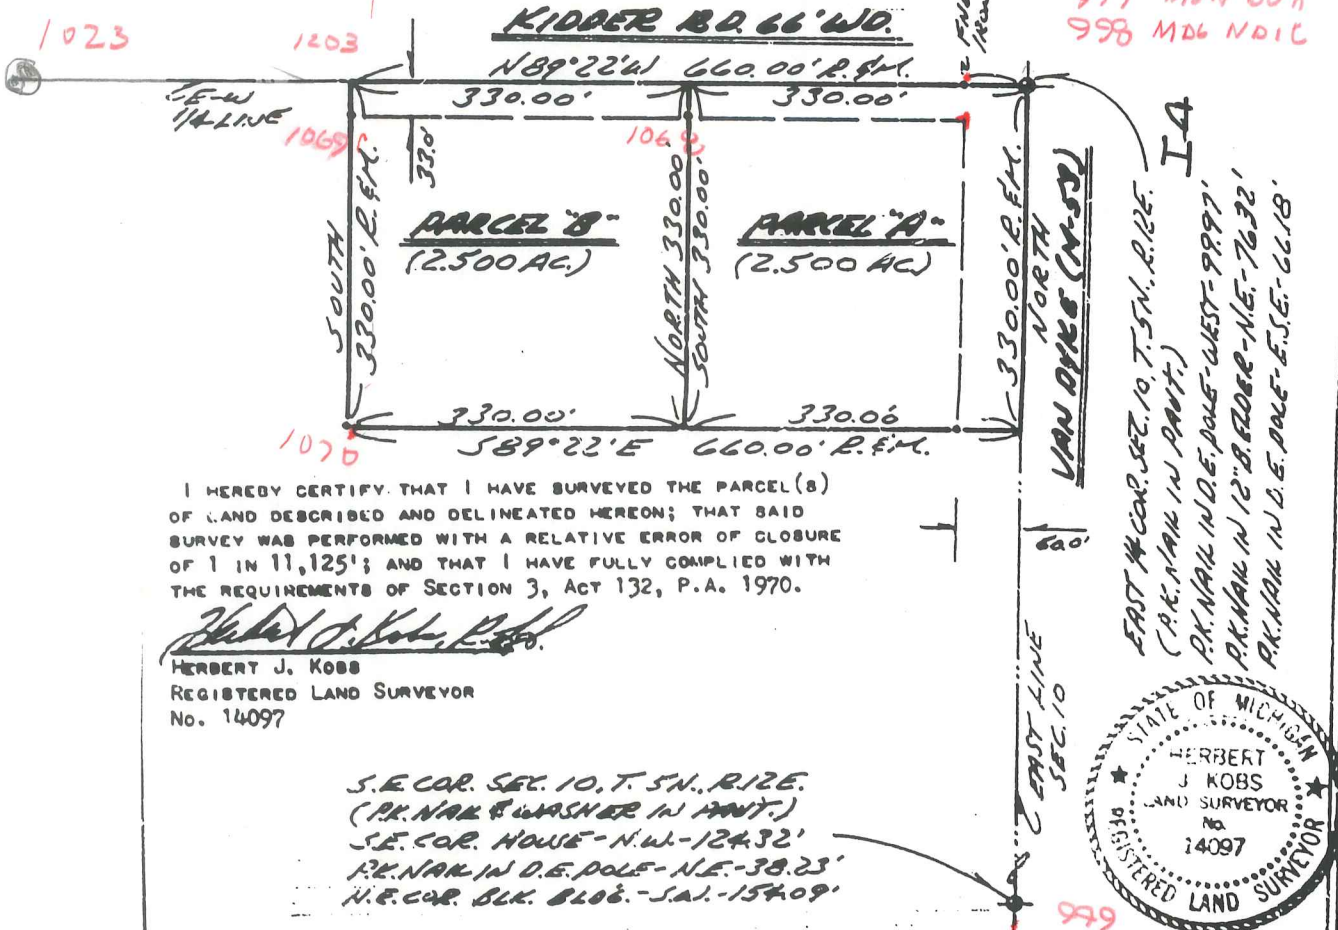 KIDDER RD. 66' WD.
998 MDG NDIC
1023
1203
N89°22'W 660.00' R.&M.
330.00' 330.00'
E-W
1/4 LINE
1069
1068
33.0'
SOUTH
330.00' R.&M.
PARCEL "B"
(2.500 AC.)
NORTH 330.00'
SOUTH 330.00'
PARCEL "A"
(2.500 AC.)
330.00' R.&M.
NORTH
VAN DYKE (M-53)
330.00' 330.00
S89°22'E 660.00' R.&M.
1070
60.0'
EAST 1/4 COR. SEC. 10, T. 5N., R.12E.
(P.K. NAIL IN PAVT.)
P.K. NAIL IN D.E. POLE-WEST-99.97'
P.K. NAIL IN 12" B. ELDER-N.E.-76.32'
P.K. NAIL IN D.E. POLE-E.S.E.-66.18'
I HEREBY CERTIFY THAT I HAVE SURVEYED THE PARCEL(S)
OF LAND DESCRIBED AND DELINEATED HEREON; THAT SAID
SURVEY WAS PERFORMED WITH A RELATIVE ERROR OF CLOSURE
OF 1 IN 11,125'; AND THAT I HAVE FULLY COMPLIED WITH
THE REQUIREMENTS OF SECTION 3, ACT 132, P.A. 1970.
HERBERT J. KOBS
REGISTERED LAND SURVEYOR
No. 14097
EAST LINE
SEC. 10
S.E. COR. SEC. 10, T. 5N., R.12E.
(P.K. NAIL & WASHER IN PAVT.)
S.E. COR. HOUSE-N.W.-124.32'
P.K. NAIL IN D.E. POLE-N.E.-38.23'
N.E. COR. BLK. BLDG.-S.W.-154.09'
999
STATE OF MICHIGAN
HERBERT
J KOBS
LAND SURVEYOR
No.
14097
REGISTERED LAND SURVEYOR